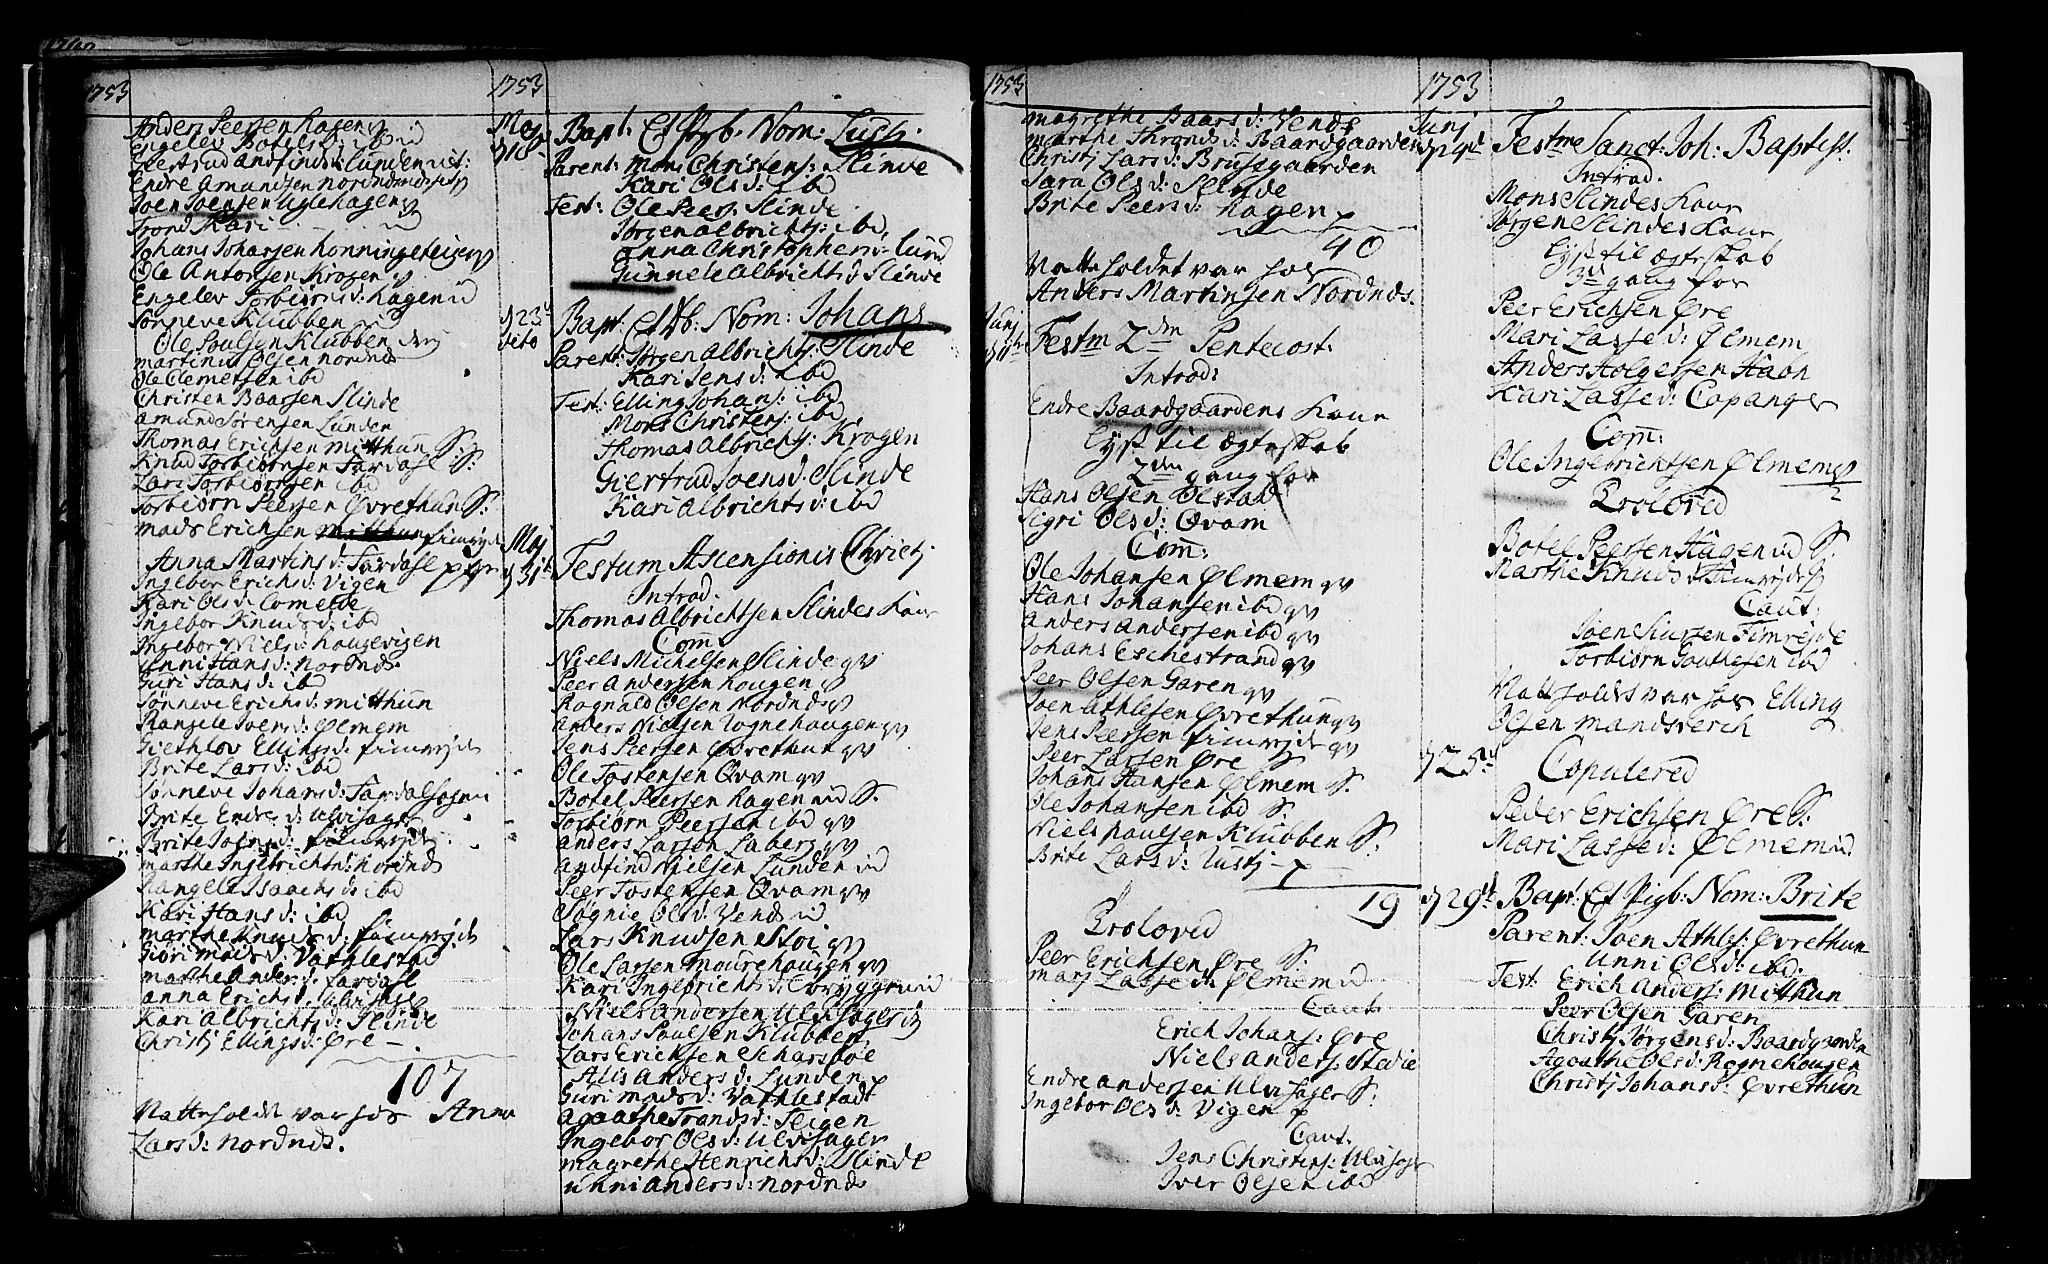 1753
Anders Peersen Hagen
Engelev Botels d: ibid
Giertrud Andfinds d: Lunden
Endre Amundsen Nordnæs
Joen Joensen Uglehagen
Trond Kari
Johans Johansen Honningeteigen
Ole Antonsen Krogen
Engelev Torbiørns d: Hagen
Sønneve Klubben
Ole Poulsen Klubben
Martinus Olsen Nordnæs
Ole Clemetsen ibd
Christen Baarsen Slinde
Amund Sørensen Lunden
Thomas Erichsen Mitthun S:
Knud Torbiørnsen Fardahl S:
Lars Torbiørnsen ibd
Torbiørn Peersen Øvrethun S:
Mads Erichsen Fimrejde
Anna Martins d: Fardahl
Ingebor Erichs d: Vigen
Kari Ols d: Lomelde
Ingebor Knuds d: ibd
Ingebor Niels d: Haugevigen
Unni Hans d: Nordnæs
Guri Hans d: ibd
Sønneve Erichs d: Mitthun
Rangele Joens d: Ølmem
Giethlov Ellings d: Fimrejde
Brite Lars d: ibd
Sønneve Johans d: Fardal
Brite Endre d: Ulvisager
Brite Joens d: Fimrejde
Marthe Ingebrichts d: Nordnæs
Rangele Isaachs d: ibd
Kari Hans d: ibd
Marthe Knuds d: Fimrejde
Giøri Mads d: Vathlestad
Marthe Anders d: Fardahl
Anna Erichs d: Ulvisager
Kari Albrichts d: Slinde
Christj Ellings d: Øre
107
Natteholdt var hos Anna
Lars d: Nordnæs.
1753
Maj
d 18
Bapt: Et Pigb. Nom: Lusj:
Parent: Mons Christens: Slinde
Kari Ols d: ibd
Test: Ole Peers: Slinde
Jørgen Albrichts: ibd
Anna Christophers d: Lund
Gunnele Albrichts d: Slinde
d 23
dito
Bapt: Et Db: Nom: Johans
Parent: Jørgen Albrichts: Slinde
Kari Jens d: ibd
Test: Elling Johans: ibd
Mons Christens: ibd
Thomas Albrichts: Krogen
Giertrud Joens d: Slinde
Kari Albrichts d: ibd
Maj
d 31
Festum Ascensionis Christj
Introd.
Thomas Albrichtsen Slindes Kone
Com:
Niels Michelsen Slinde
Peer Andersen Hougen
Ragnald Olsen Nordnæs
Anders Nielsen Rognehaugen
Jens Peersen Øvrethun
Ole Tostensen Qvam
Botel Peersen Hagen S.
Torbiørn Peersen ibd
Anders Larsen Labers
Andfind Nielsen Lunden
Peer Tostensen Qvam
Søgnie Ols d: Vends
Lars Knudsen Stoi
Ole Larsen Mourehougen
Kari Ingebrichts d: Loryggen
Niels Andersen Ulvisager
Johans Poulsen Klubben
Lars Erichsen Scharsbøe
Alis Anders d: Lunden
Guri Mads d: Vathlestad
Agoathe Tronds d: Teigen
Ingebor Ols d: Ulvisager
Magrethe Henrichs d: Slinde
Unni Anders d: Nordnæs
1753
Magrethe Baars d: Vends
Marthe Thronds d: Baardgaarden
Christj Lars d: Brusegaarden
Sara Ols d: Slinde
Brite Peers d: Hagen
40
Natteholdet var hos
Anders Martinsen Nordnæs.
Junj
Festm 2den Pentecost:
Introd:
Endre Baardgaardens Kone
Lyst til Ægteskab
2den gang for
Hans Olsen Ølstad
Sigri Ols d: Qvam
Com:
Ole Johansen Ølmem
Hans Johansen ibd
Anders Andersen ibd
Johans Eschestrand
Peer Olsen Garen
Joen Athlesen Øvrethun
Jens Peersen Fimrejde
Peer Larsen Øre S
Johans Hansen Ølmem S.
Ole Johansen ibd S.
Niels Poulsen Klubben S:
Brite Lars d: Rustj
19
Troloved
Peer Erichsen Øre S.
Marj Lasse d: Ølmem
Caut.
Erich Johans: Øre
Niels Anders: Stedie
Endre Andersen Ulvisager S:
Ingebor Ols d: Vigen
Caut.
Jens Christens: Ulvisager
Iver Olsen ibd
1753
Junj
d 24d
Festme Sanct: Joh: Baptist.
Introd.
Mons Slindes Kone
Jørgen Slindes Kone
Lyst til Ægteskab
3de gang for
Peer Erichsen Øre
Mari Lasse d: Ølmem
Anders Holgersen Haah
Kari Lasse d: Copanger
Com:
Ole Ingebrichtsen Ølmem
2
Troloved
Botel Peersen Hagen S.
Marthe Knuds d: Fimrejde
Caut:
Joen Siursen Fimrejde
Torbiørn Gouthesen ibd
Natteholdt var hos Elling
Olsen Mandsverch
d 25
Copulered
Peder Erichsen Øre S:
Mari Lasse d: Ølmem
d 29
Bapt: Et Pigb: Nom: Brite
Parent: Joen Athles: Øvrethun
Unni Ols d: ibd.
Test: Erich Anders: Mitthun
Peer Olsen Garen
Christj Jørgens d: Baardgaarden
Agoathe Ols d: Rognehougen
Christj Johans d: Øvrethun